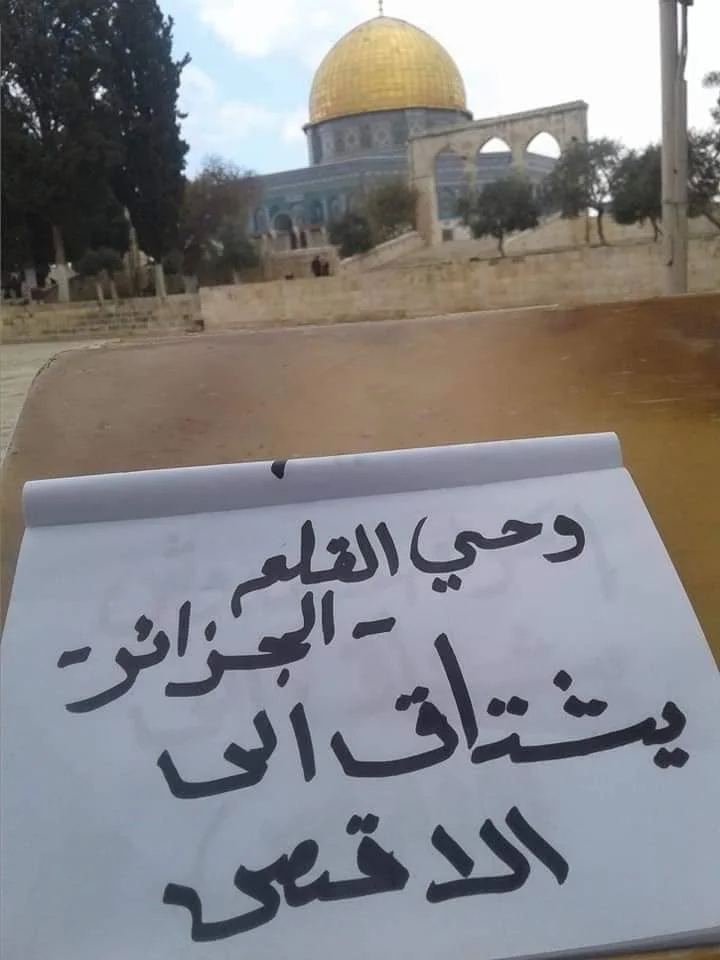 وحي القلم
- الجزائر -
يشتاق الى
الاقصى